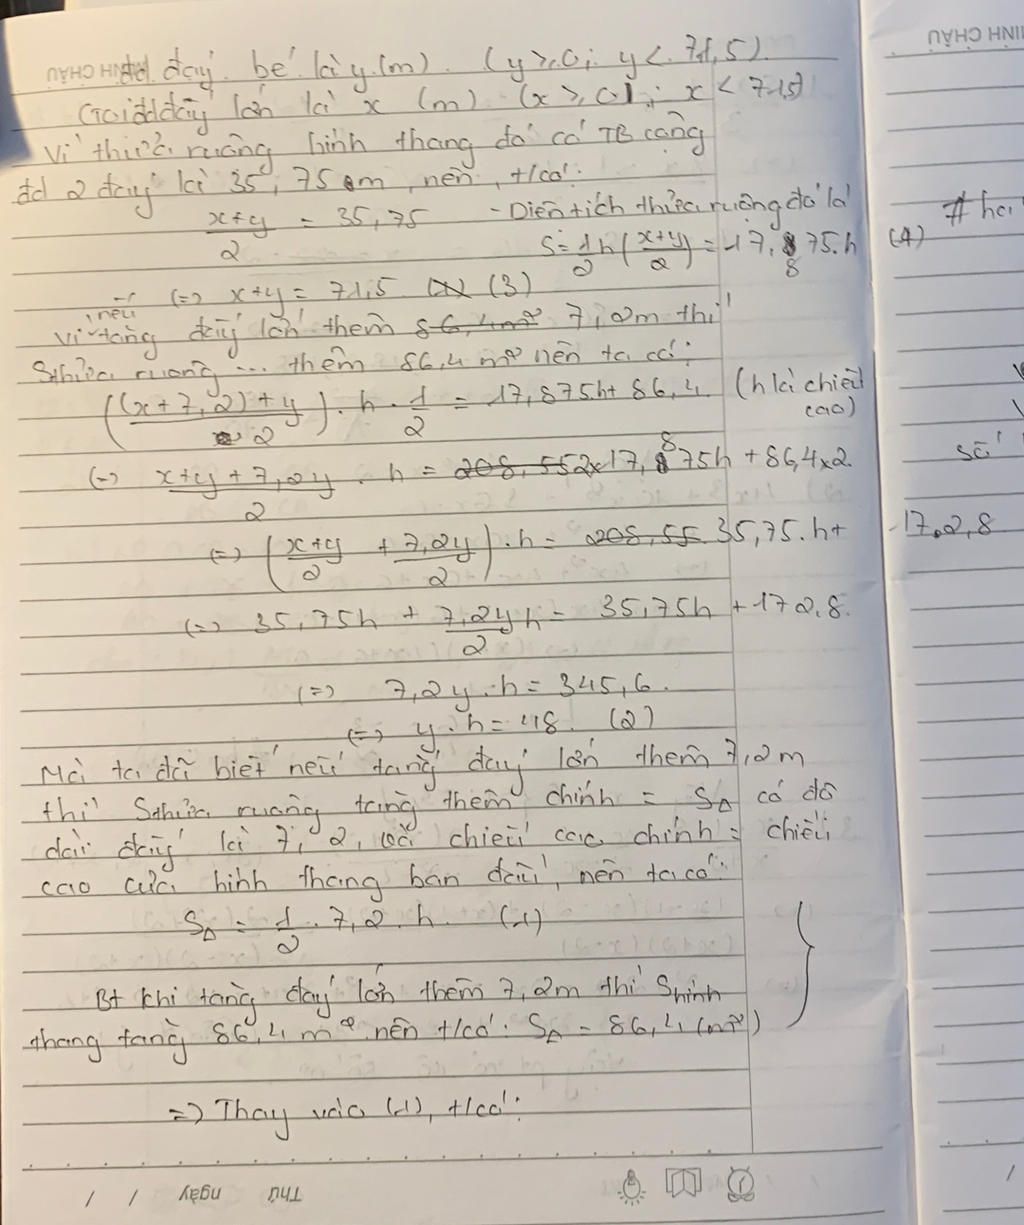 MINH CHÂU
đd đáy bé là y (m) (y > 0; y < 71,5).
Gọi đd đáy lớn là x (m) (x > 0; x < 71,5)
Vì thửa ruộng hình thang đó có TB cộng
đd 2 đáy là 35,75 m, nên, t/có:
x+y / 2 = 35,75
- Diện tích thửa ruộng đó là
S = 1/2 h (x+y / 2) = 17,875.h (4)
(=) x+y = 71,5 (3)
Vì nếu tăng đáy lớn thêm 86,4m² 7,2m thì
Sthửa ruộng ... thêm 86,4 m² nên ta có:
((x+7,2)+y / 2) . h . 1/2 = 17,875h + 86,4 (h là chiều cao)
(=) x+y+7,2y / 2 . h = 208,552x17,875h + 86,4x2
(=) (x+y / 2 + 7,2y / 2) . h = 208,55 35,75.h + 172,8
(=) 35,75h + 7,2y / 2 h = 35,75h + 172,8.
(=) 7,2y . h = 345,6.
(=) y . h = 48. (2)
Mà ta đã biết nếu tăng đáy lớn thêm 7,2m
thì Sthửa ruộng tăng thêm chính = SΔ có độ
dài đáy là 7,2, với chiều cao chính = chiều
cao của hình thang ban đầu, nên ta có:
SΔ = 1/2 . 7,2 . h (1)
Bt khi tăng đáy lớn thêm 7,2m thì Shình
thang tăng 86,4 m² nên t/có: SΔ = 86,4 (m²)
=) Thay vào (1), t/có:
Thứ ngày / /
MINH CHÂU
# hai
số